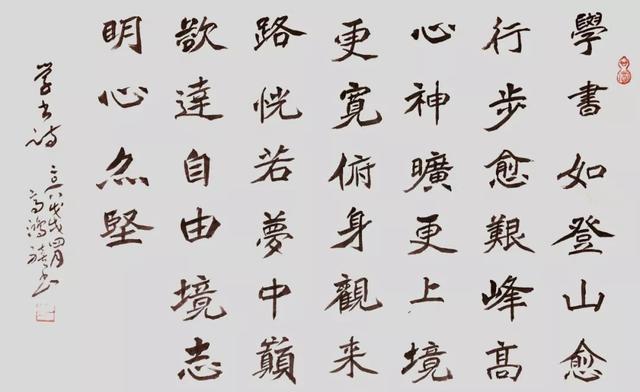 學書如登山愈
行步愈艱峰高
心神曠更上境
更寬俯身觀来
路恍若夢中巔
欲達自由境志
明心亦堅
学书诗
八戊戌四月
高鴻书